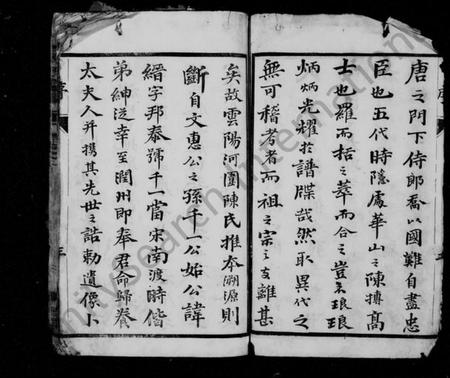 唐之門下侍郎喬以國難自盡忠
臣也五代時隱處華山之陳摶高
士也羅而括之萃而合之豈不琅琅
炳炳光耀於譜牒哉然取異代之
無可稽考者而祖之宗之支離甚
矣故雲陽河圍陳氏推本溯源則
斷自文惠公之孫千一公始公諱
縉字邦泰號千一當宋南渡時偕
弟紳泛幸至潤州即奉君命歸養
太夫人并攜其先世之誥勅遺像卜
序